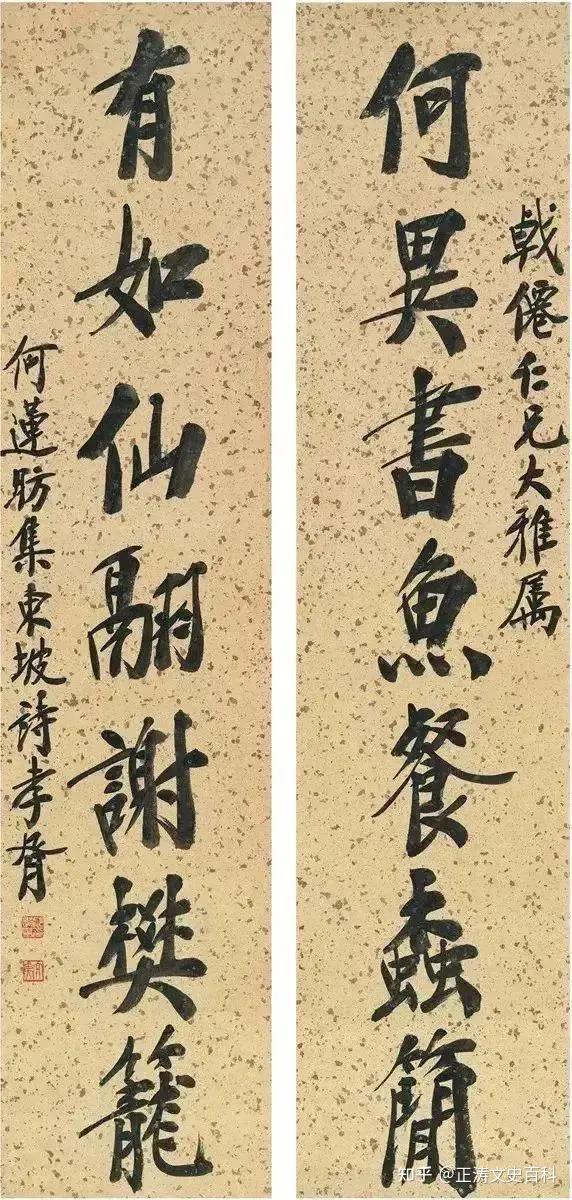 戟僊仁兄大雅属
何異書魚餐蠹簡
有如仙翮謝樊籠
何蓮舫集東坡詩孝胥
知乎 @正涛文史百科